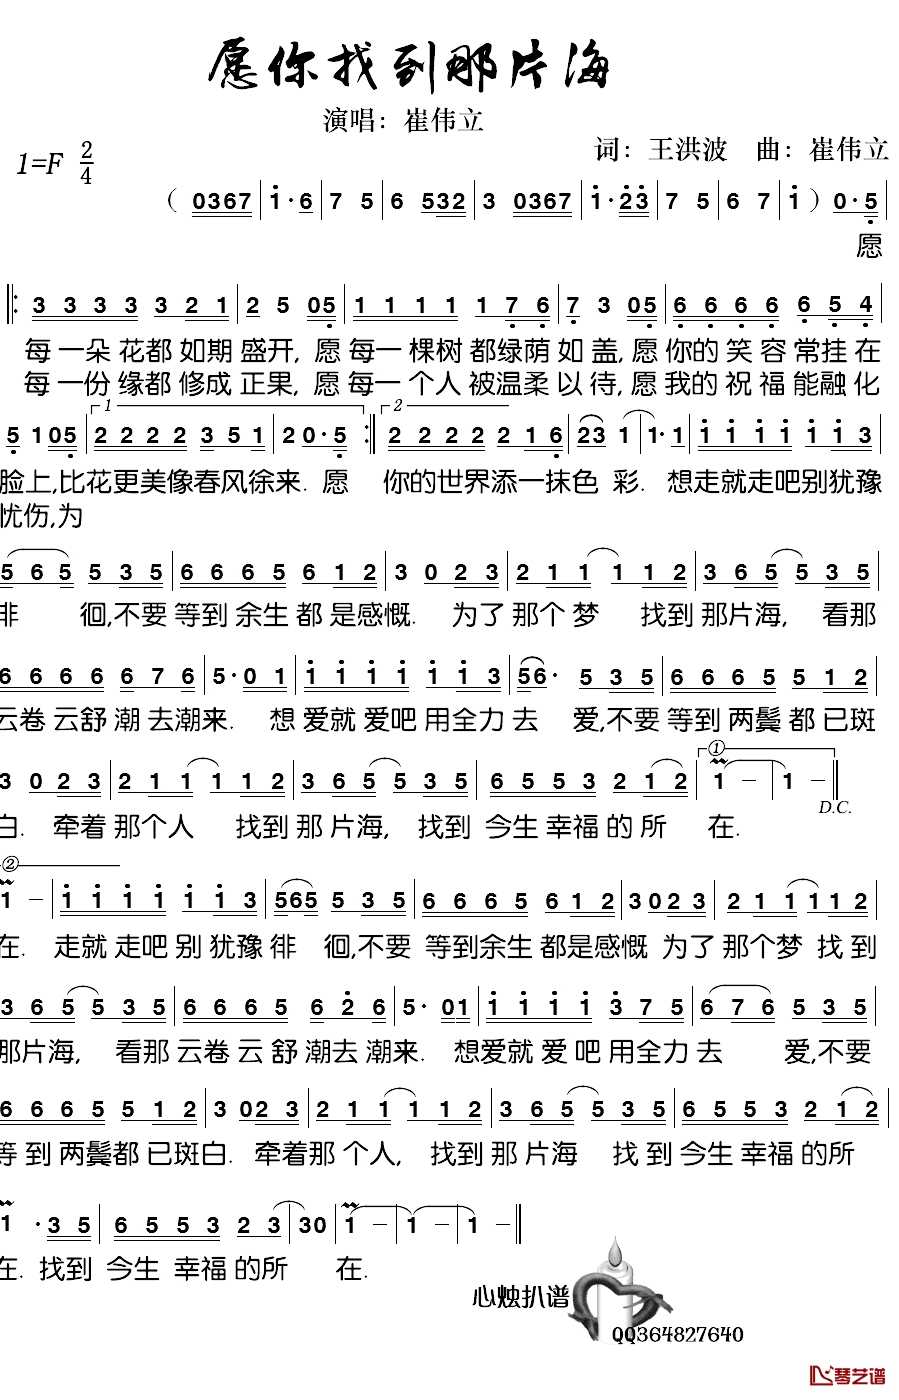 愿你找到那片海
演唱：崔伟立
1=F 2/4
词：王洪波 曲：崔伟立
（0367|1·6|75|6 532|3 0367|1·23|75|67|1）0·5|
愿
‖:3333 321|25 05|1111 176|7 3 05|6666 654|
每一朵花都如期盛开,愿每一棵树都绿荫如盖,愿你的笑容常挂在
每一份缘都修成正果,愿每一个人被温柔以待,愿我的祝福能融化
1 2
5 105|2222 351|20·5:‖2222 216|23 1|1·1|1111 113|
脸上,比花更美像春风徐来.愿 你的世界添一抹色彩.想走就走吧别犹豫
忧伤,为
565 535|6666 612|3 023|211 112|365 535|
徘 徊,不要等到余生都是感慨.为了那个梦 找到那片海, 看那
6666 676|5·01|1111 113|56· 535|6665 512|
云卷云舒潮去潮来. 想爱就爱吧用全力去 爱,不要等到两鬓都已斑
①
3 023|211 112|365 535|6553 212|1 −|1 −‖
D.C.
白. 牵着那个人 找到那片海, 找到今生幸福的所 在.
②
1 −|1111 113|565 535|6665 612|3023|211 112|
在. 走就走吧别犹豫徘 徊,不要 等到余生都是感慨 为了那个梦找到
365 535|6665 626|5·01|1111 375|676 535|
那片海, 看那云卷云舒潮去潮来. 想爱就爱吧用全力去 爱,不要
6665 512|3 023|211 112|365 535|6553 212|
等到两鬓都已斑白. 牵着那个人, 找到那片海 找到今生幸福的所
1 ·35|6553 23|30|1 −|1 −|1 −‖
在. 找到今生幸福的所 在.
心烛扒谱
QQ364827640
琴艺谱